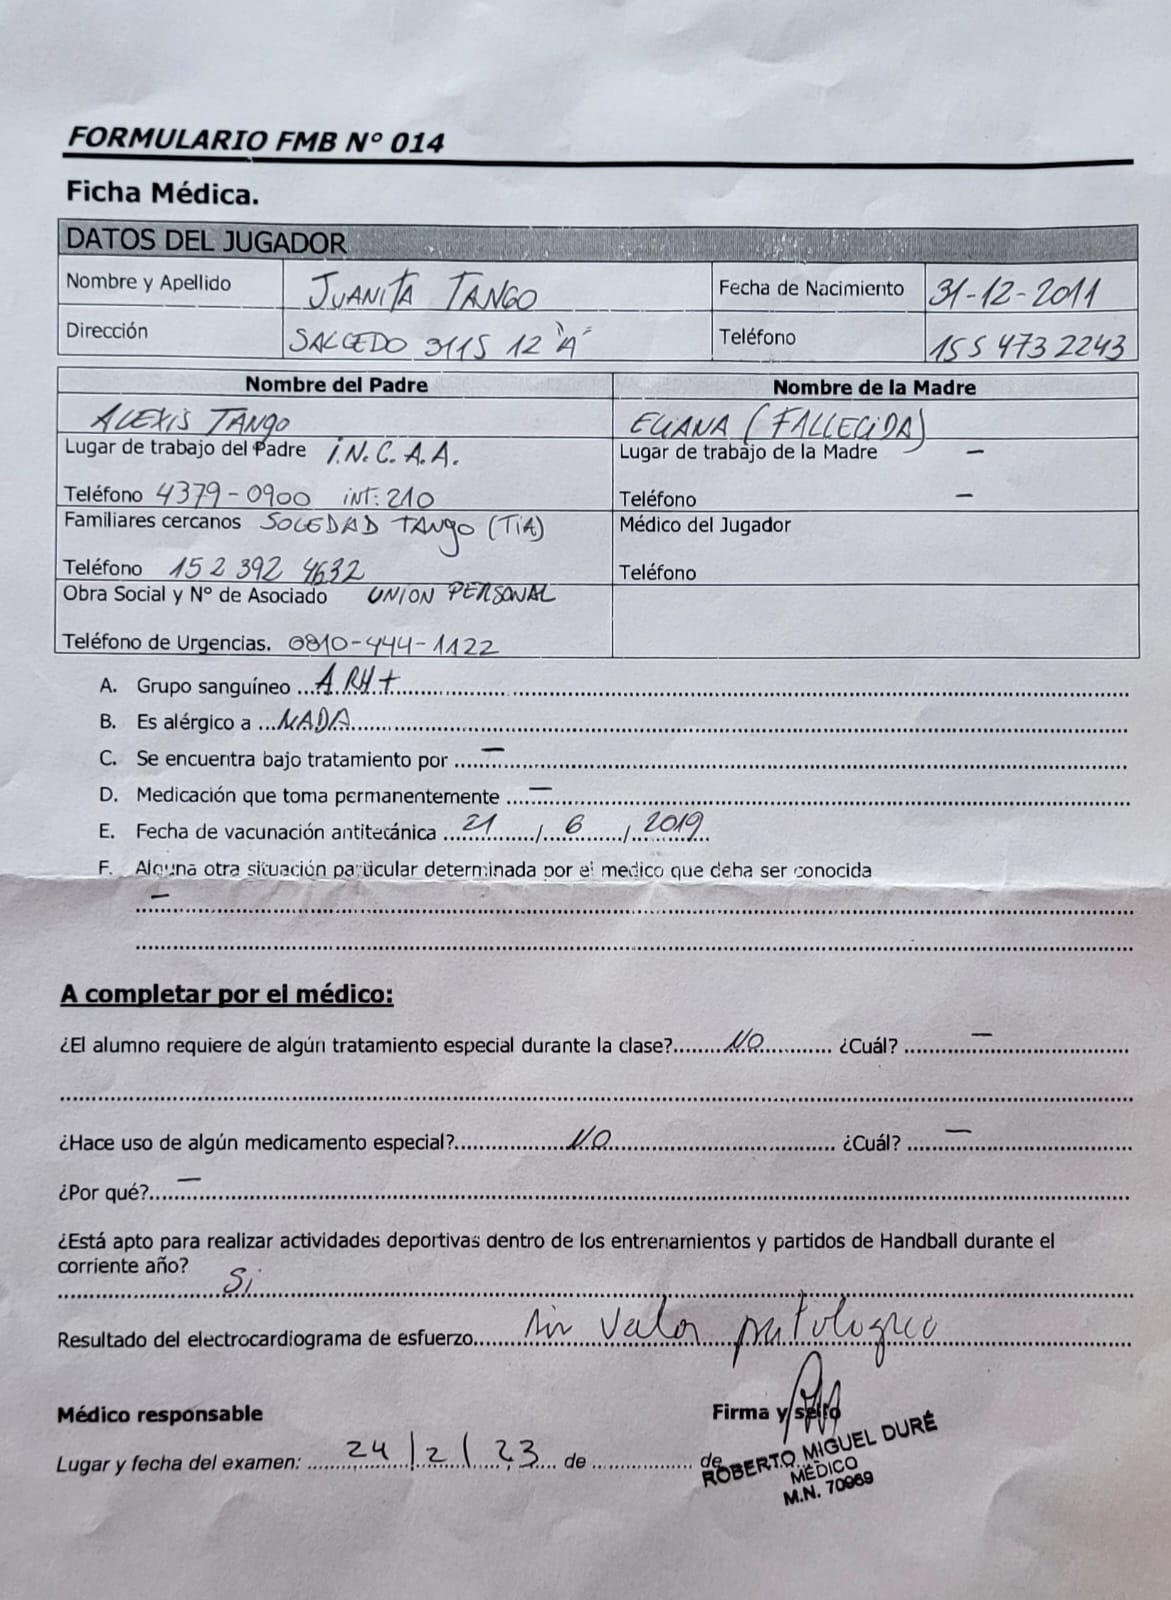 FORMULARIO FMB Nº 014
Ficha Médica.
DATOS DEL JUGADOR
Nombre y Apellido JUANITA TANGO Fecha de Nacimiento 31-12-2011
Dirección SALCEDO 3115 12 "A" Teléfono 155 473 2243
Nombre del Padre Nombre de la Madre
ALEXIS TANGO ELIANA (FALLECIDA)
Lugar de trabajo del Padre I.N.C.A.A. Lugar de trabajo de la Madre —
Teléfono 4379-0900 INT: 210 Teléfono —
Familiares cercanos SOLEDAD TANGO (TIA) Médico del Jugador
Teléfono 152 392 4632 Teléfono
Obra Social y Nº de Asociado UNION PERSONAL
Teléfono de Urgencias. 0810-444-1122
A. Grupo sanguíneo ...A.RH+...
B. Es alérgico a ...NADA...
C. Se encuentra bajo tratamiento por ...—...
D. Medicación que toma permanentemente ...—...
E. Fecha de vacunación antitecánica ...21.../...6.../...2019...
F. Alguna otra situación particular determinada por el medico que deba ser conocida
—
A completar por el médico:
¿El alumno requiere de algún tratamiento especial durante la clase?...NO... ¿Cuál? ...—...
¿Hace uso de algún medicamento especial?...NO... ¿Cuál? ...—...
¿Por qué?...—...
¿Está apto para realizar actividades deportivas dentro de los entrenamientos y partidos de Handball durante el
corriente año?
Si
Resultado del electrocardiograma de esfuerzo...sin valor patologico
Médico responsable Firma y sello
Lugar y fecha del examen: ...24/2/23... de ... de
ROBERTO MIGUEL DURÉ
MÉDICO
M.N. 70969